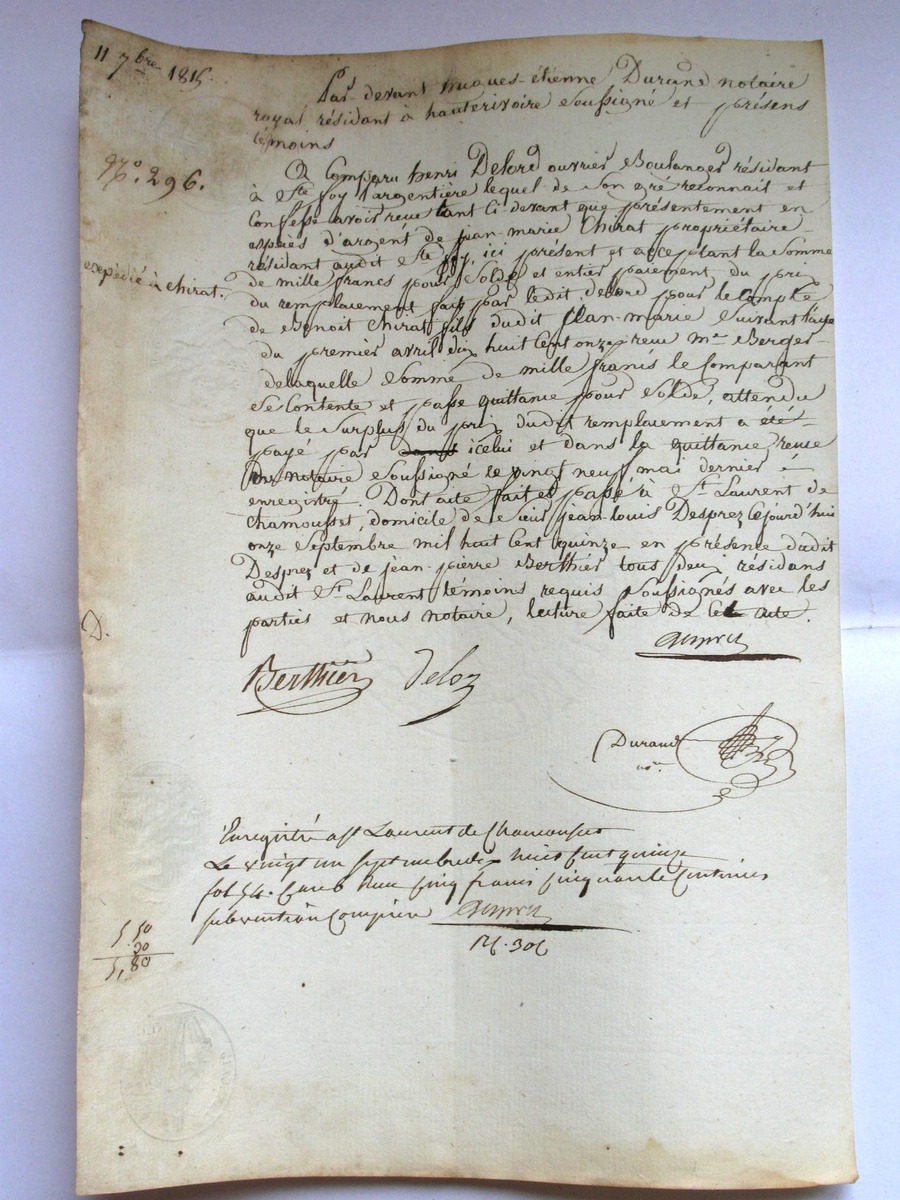 11 7bre 1815.
Par-devant hugues-étienne Durand notaire
royal résidant à hauterivoire soussigné et présens
témoins
N°. 296.
A Comparu henri Delord ouvrier Boulanger résidant
à Ste foy l'argentière lequel de son gré reconnait et
Confesse avoir reçu tant ci devant que présentement en
espèces d'argent de jean-marie Chirat propriétaire
résidant audit Ste foy, ici présent et acceptant la Somme
expédié à chirat.
de mille francs pour Solde et entier paiement du prix
du remplacement fait par ledit delord pour le Compte
de Benoit Chirat fils dudit Jean-marie Suivant l'acte
du premier avril dix huit Cent onze reçu Me Berger
delaquelle Somme de mille francs le Comparant
Se Contente et passe quittance pour Solde, attendu
que le Surplus du prix dudit remplacement a été
payé par dans icelui et dans la quittance reçue
notaire Soussigné le vingt neuf mai dernier
enregistré. Dont acte fait et passé à St. Laurent de
chamousset, domicile de Sieur jean-louis Desprez Cejourd'hui
onze Septembre mil huit Cent quinze en présence dudit
Desprez et de jean-pierre Berthier tous deux résidans
audit St. Laurent témoins requis Soussignés avec les
D.
parties et nous notaire, lecture faite de Cet acte.
Berthier
Durand
nore.
Enregistré a St Laurent de Chamousset
Le vingt un septembre dix huit cent quinze
fol 54. reçu Cinq francs Cinquante Centimes
subvention Comprise
5,50
30
5,80